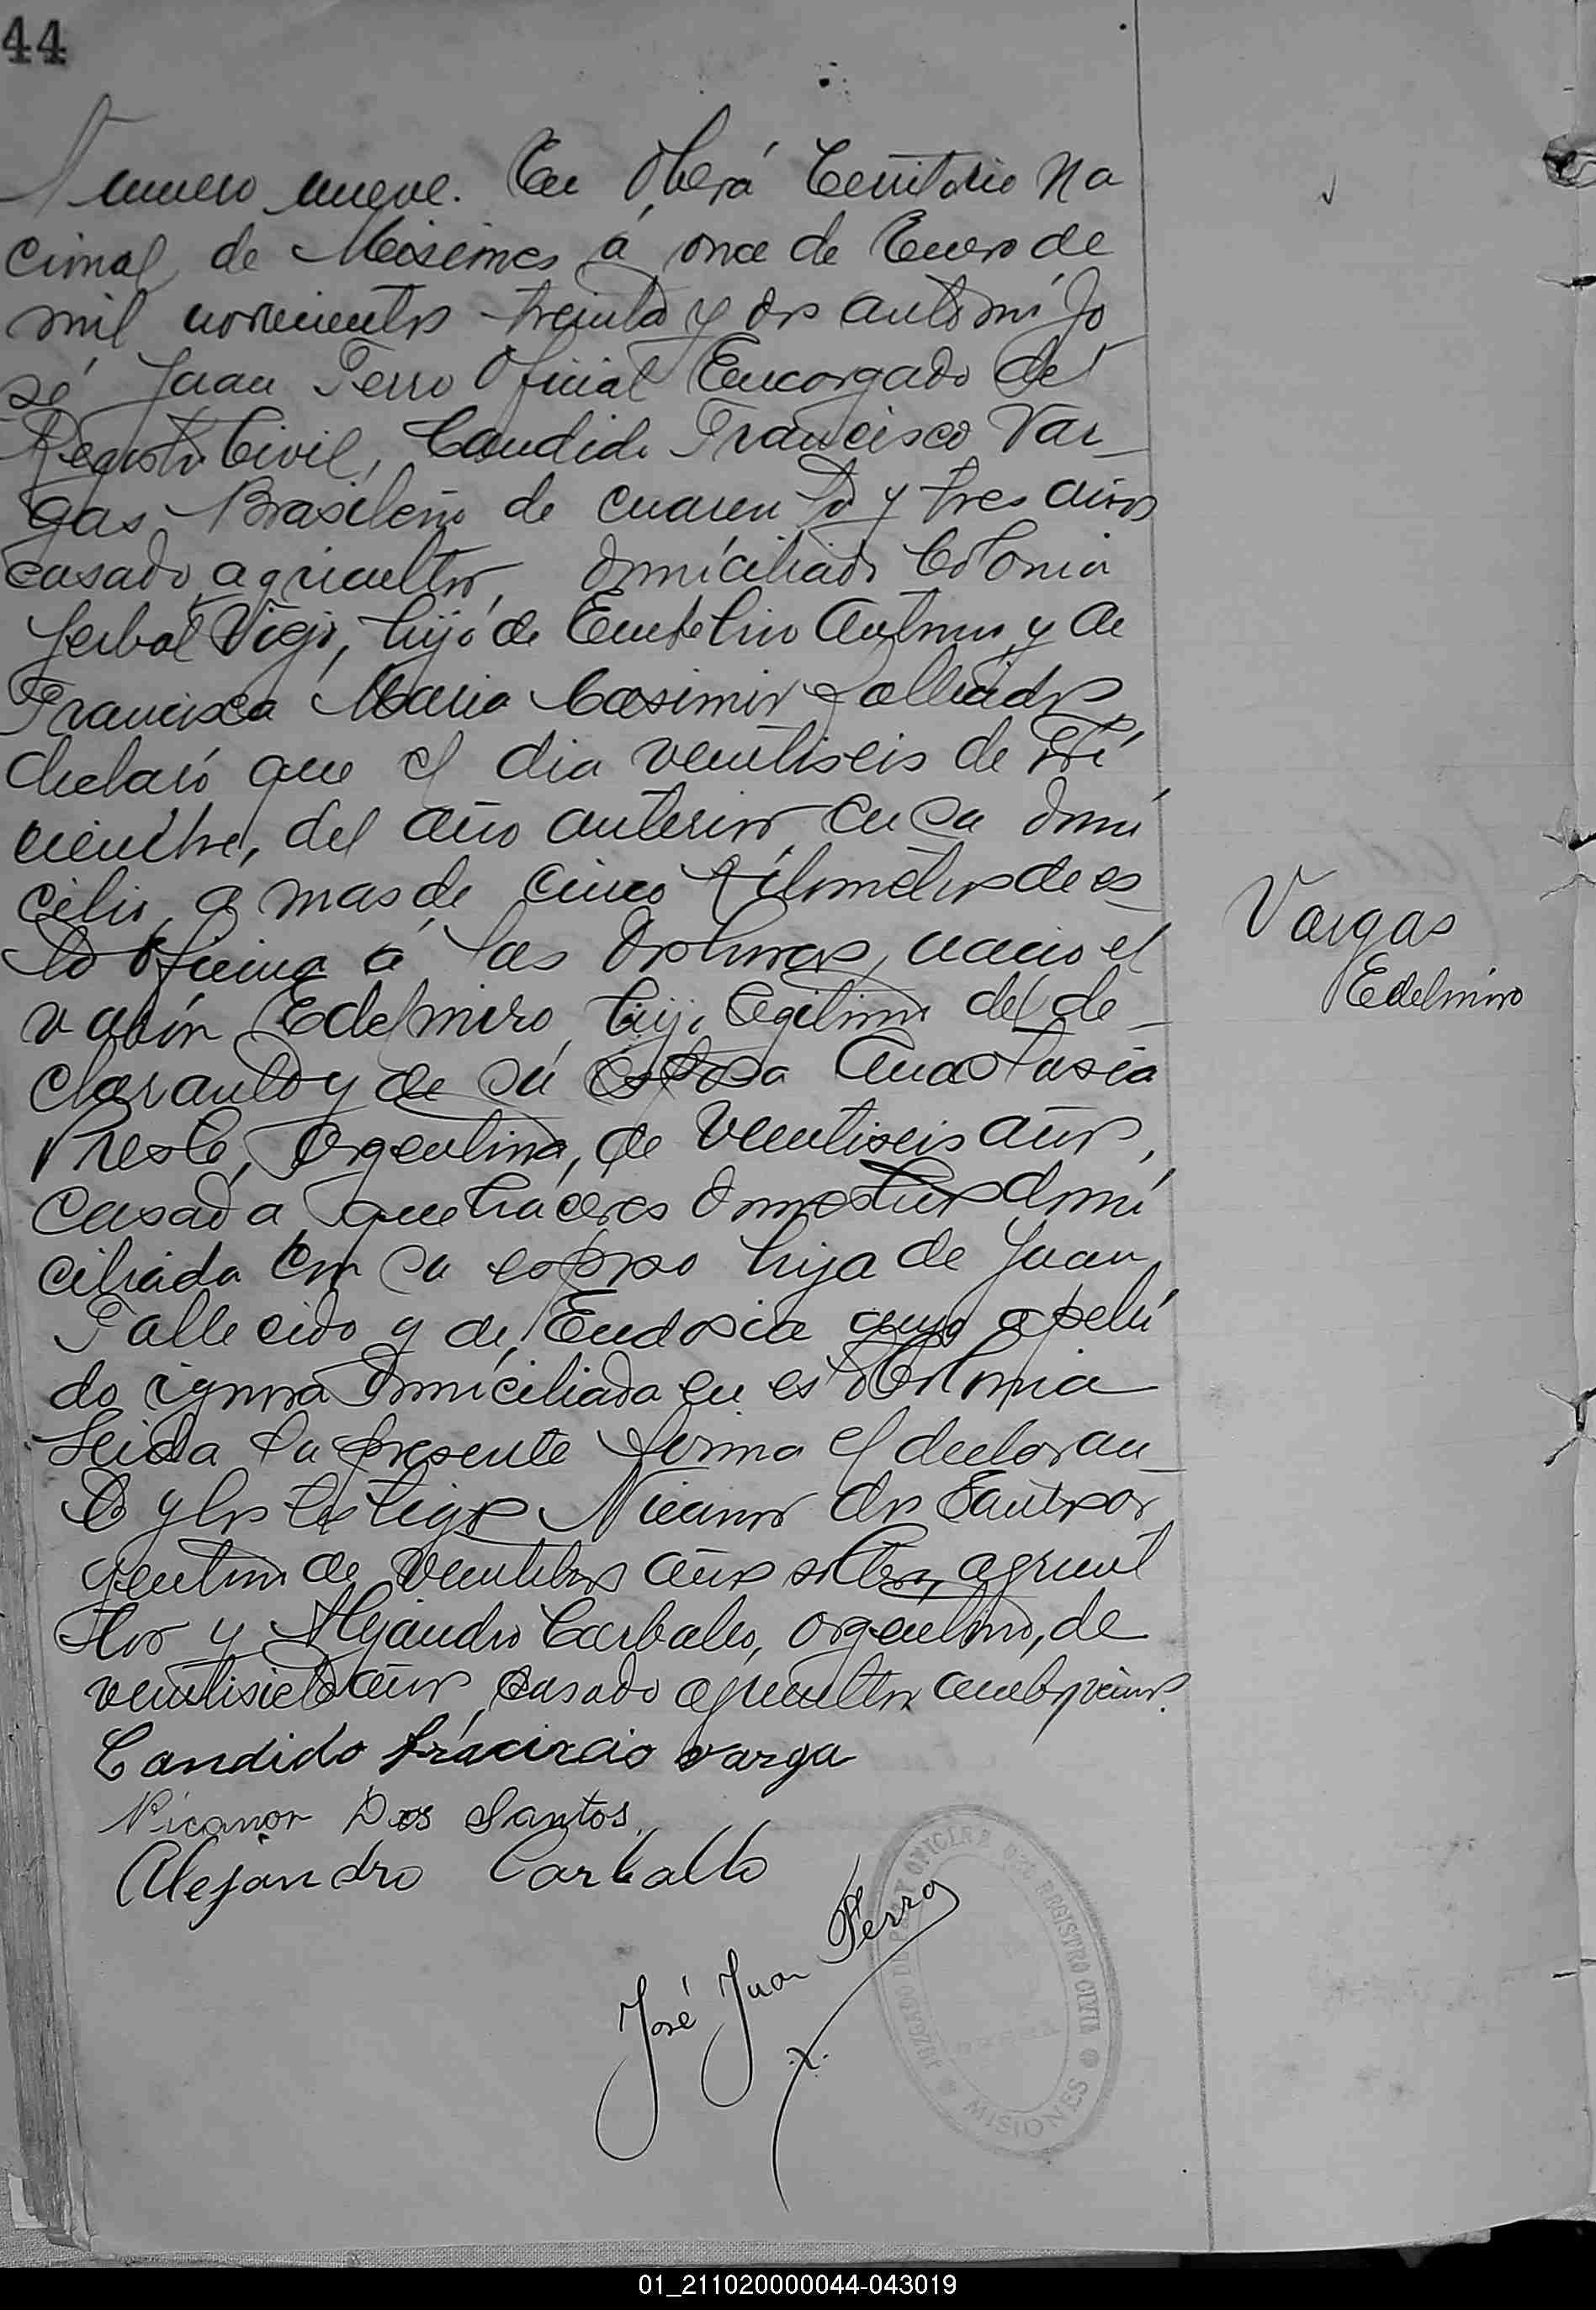 44
Numero nueve. En Oberá Territorio Na
cional de Misiones á once de Enero de
mil novecientos treinta y dos ante mí Jo
sé Juan Ferro Oficial Encargado del
Registro Civil, Candido Francisco Var_
gas, Brasileño de cuarenta y tres años
casado, agricultor, domiciliado Colonia
Yerbal Viejo, hijo de y de
Francisca Maria Casimir Fallecidos,
declaró que el dia ventiseis de Di
ciembre, del año anterior, en su domi
cilio, a mas de cinco kilometros de es_
ta oficina á las dos horas, nacio el
varón Edelmiro, hijo legitimo del de_
clarante y de su esposa Anastasia
Preste, Argentina, de ventiseis años,
casada, quehaceres domesticos domi
ciliada con su esposo hija de Juan,
Fallecido y de Eudosia cuyo apelli
do ignora domiciliada en esta Colonia
Leida la presente firma el declaran_
te y los testigos Nicanor dos Santos ar
gentino de años soltero, agricul
tor y Alejandro Carballo, argentino, de
ventisiete años, casado agricultor, ambos vecinos.
Candido francisco varga
Nicanor Dos Santos.
Alejandro Carballo
José Juan Ferro
JUZGADO DE PAZ Y OFICINA DEL REGISTRO CIVIL
MISIONES
Vargas
Edelmiro
01_211020000044-043019